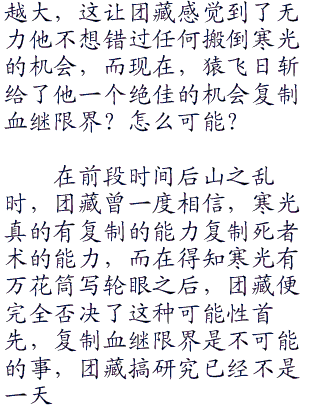 越大，这让团藏感觉到了无
力他不想错过任何搬倒寒光
的机会，而现在，猿飞日斩
给了他一个绝佳的机会复制
血继限界？怎么可能？
在前段时间后山之乱
时，团藏曾一度相信，寒光
真的有复制的能力复制死者
术的能力，而在得知寒光有
万花筒写轮眼之后，团藏便
完全否决了这种可能性首
先，复制血继限界是不可能
的事，团藏搞研究已经不是
一天